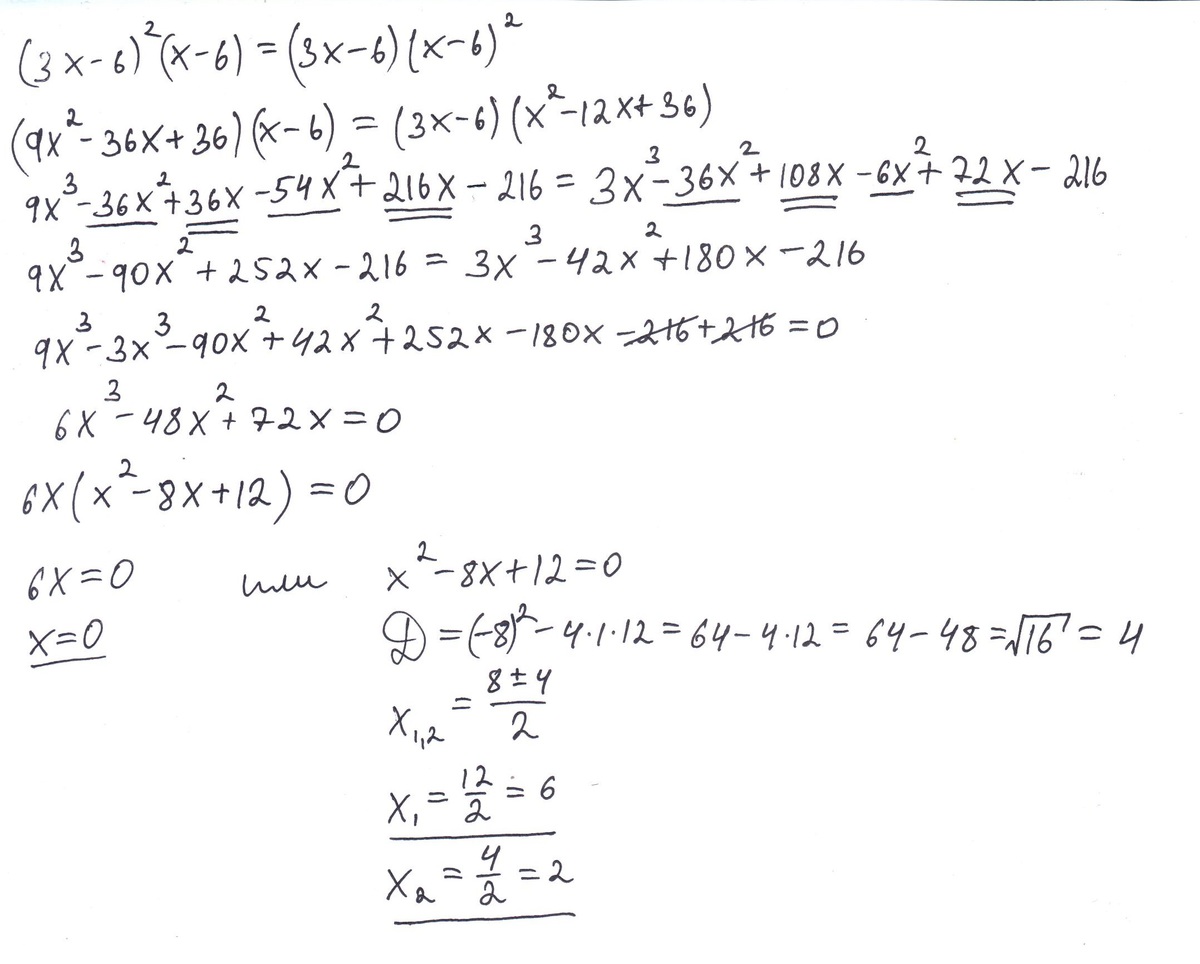 (3x-6)²(x-6) = (3x-6)(x-6)²
(9x²-36x+36)(x-6) = (3x-6)(x²-12x+36)
9x³-36x²+36x-54x²+216x-216 = 3x³-36x²+108x-6x²+72x-216
9x³-90x²+252x-216 = 3x³-42x²+180x-216
9x³-3x³-90x²+42x²+252x-180x-216+216=0
6x³-48x²+72x=0
6x(x²-8x+12)=0
6x=0 или x²-8x+12=0
x=0 D=(-8)²-4·1·12=64-4·12=64-48=√16=4
x₁,₂ = (8±4)/2
x₁ = 12/2 = 6
x₂ = 4/2 = 2